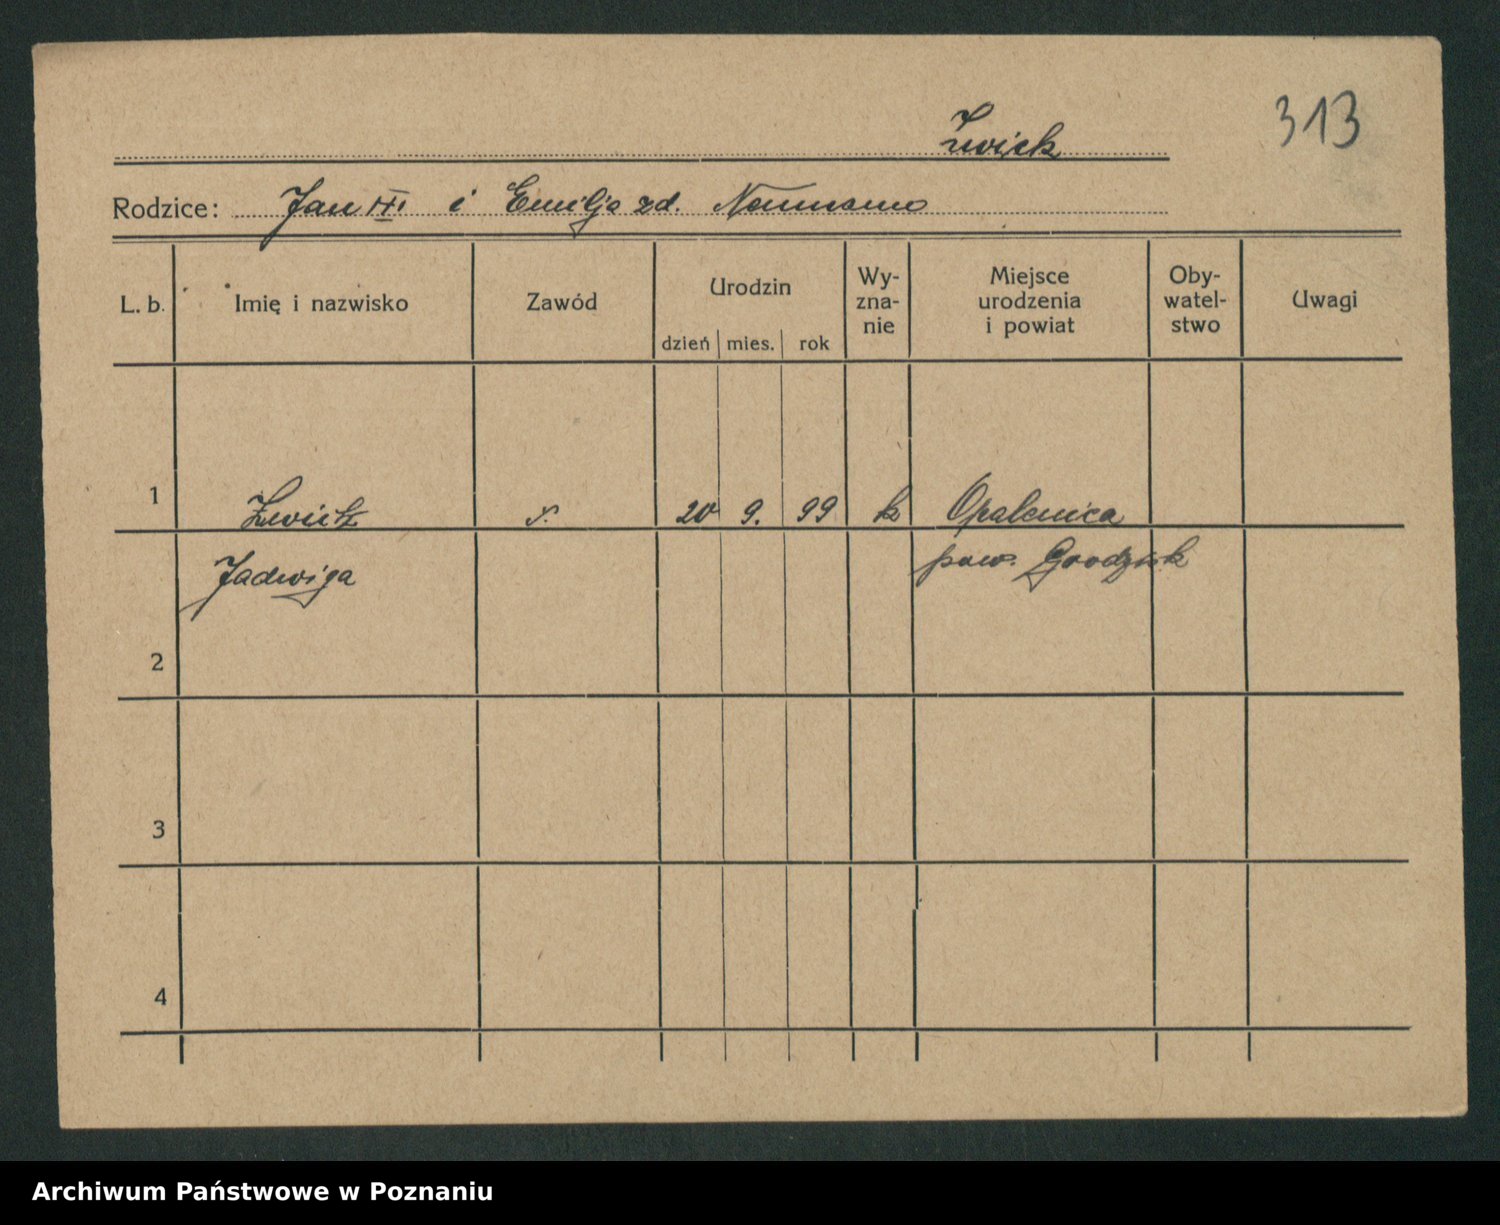 313
Zwick
Rodzice: Jan III i Emilja zd. Neumann
L. b. Imię i nazwisko Zawód Urodzin dzień mies. rok Wy-zna-nie Miejsce urodzenia i powiat Oby-watel-stwo Uwagi
1 Zwick 20 9. 99 k Opalenica
Jadwiga pow. Grodzisk
2
3
4
Archiwum Państwowe w Poznaniu